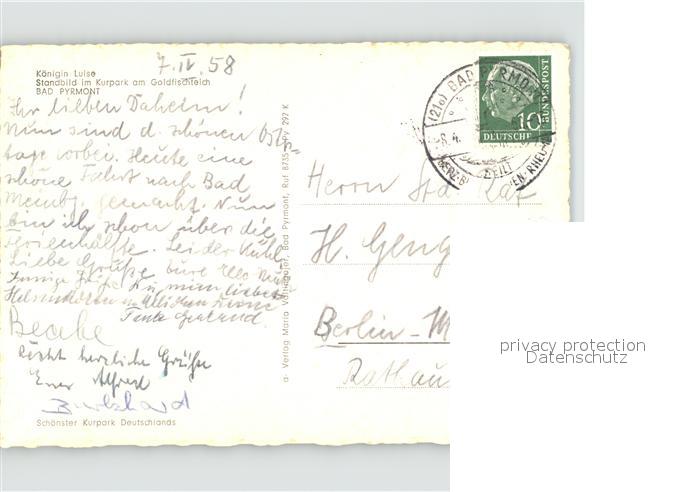 Königin Luise
Standbild im Kurpark am Goldfischteich
BAD PYRMONT
7. IV. 58
Ihr lieben Daheim!
Nun sind d. schönen Oster-
tage vorbei. Heute eine
schöne Fahrt nach Bad
gemacht. Nun
bin ich schon über die
Ferienhälfte. Leider kühl.
Liebe Grüße eure
Innige Grüße
Tante Gertrud.
Beate
Recht herzliche Grüße
Euer Alfred
Burkhard
Schönster Kurpark Deutschlands
a- Verlag Maria Bad Pyrmont, Ruf 8735 Py 292 K
(21a) BAD PYRMONT
-8.4.
10
DEUTSCHE
BUNDESPOST
Herrn Std Rat
H. Geng
Berlin-M
Rathau
privacy protection
Datenschutz